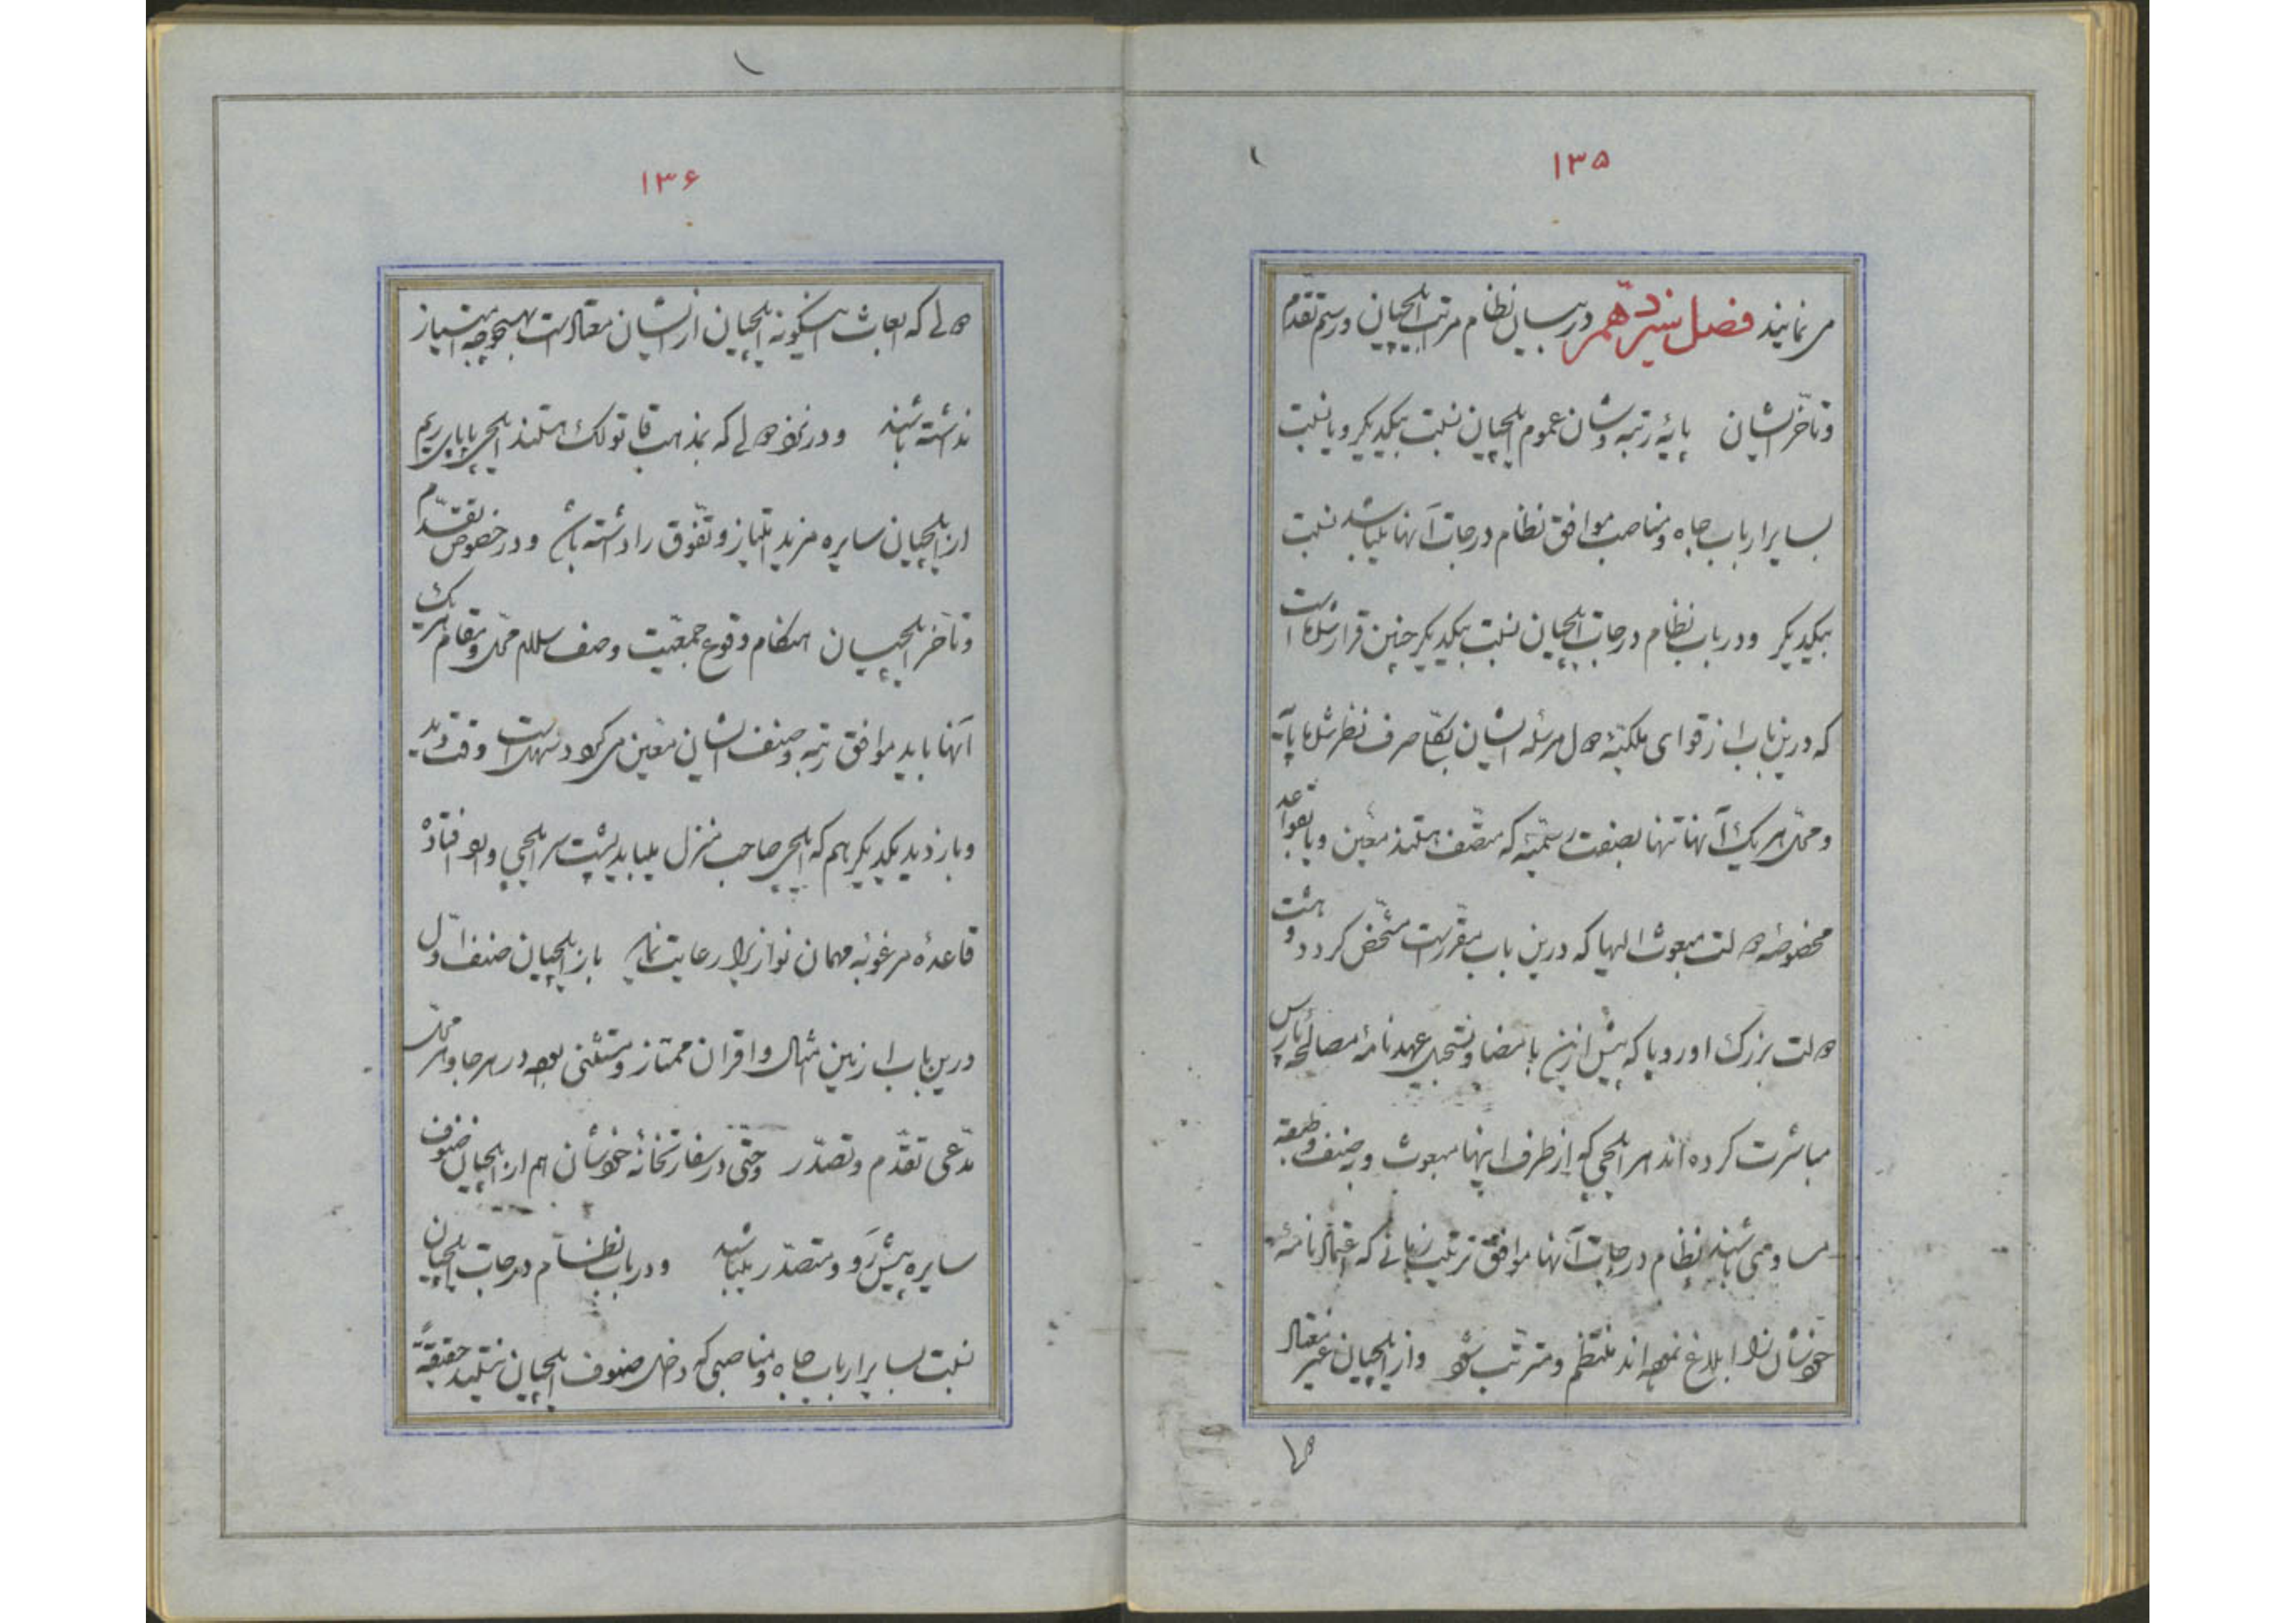 ۱۳۵
می نمایند فصل سیزدهم در بیان نظام مراتب ایلچیان و رسم تقدّم
و تأخّر ایشان پایه و رتبه و شان عموم ایلچیان نسبت بیکدیگر و یا نسبت
بسایر ارباب جاه و مناصب موافق نظام درجات آنها میباشد نسبت
بیکدیگر و در باب نظام درجات ایلچیان نسبت بیکدیگر چنین قرار شده است
که درین باب از قوای ملکیّهٔ دول مرسله ایشان بکلّی صرف نظر شده پایه
و محلّ هر یک آنها تنها بصفت رسمیّه که متّصف هستند معین و یا بقواعد
مخصوصه دولت مبعوث الیها که درین باب مقرّرست مشخّص گردد و هشت
دولت بزرگ اوروپا که پیش ازین بامضا و تسجیل عهدنامهٔ مصالحهٔ پاریس
مباشرت کرده اند هر ایلچی که از طرف اینها مبعوث و بصنف و طبقه
مساوی باشند نظام درجات آنها موافق ترتیب زمانی که اعتمادنامهٔ
خودشان را ابلاغ نموده اند منتظم و مترتّب شود و از ایلچیان غیر معتاد
دولی
۱۳۶
دولی که بعاث اینگونه ایلچیان ازیشان معتادست بهیچوجه امتیاز
نداشته باشند و در نزد دولی که بمذهب قاتولک هستند ایلچی پاپای ریم
از ایلچیان سایره مزید امتیاز و تفوّق را داشته باشد و در خصوص تقدّم
و تأخّر ایلچیان هنگام وقوع جمعیّت و صف سلام محلّ و مقام هر یک
آنها باید موافق رتبه و صنف ایشان معیّن می گردد سهلست وقت دید
و بازدید یکدیگر هم که ایلچی صاحب منزل میباید پشت سر ایلچی وارد افتاده
قاعدهٔ مرغوبه مهمان نوازی را رعایت نماید باز ایلچیان صنف اوّل
درین باب ازین امثال و اقران ممتاز و مستثنی بوده در هر جا و هر محلّ
مدّعی تقدّم و تصدّر و حتّی در سفارتخانهٔ خودشان هم از ایلچیان صنوف
سایره پیش رَو و متصدّر میباشند و در باب نظام درجات ایلچیان
نسبت بسایر ارباب جاه و مناصبی که داخل صنوف ایلچیان نیستند حقیقةً